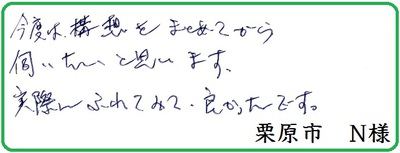 今度は、構想をまとめてから
伺いたいと思います。
実際にふれてみて、良かったです。
栗原市　N様